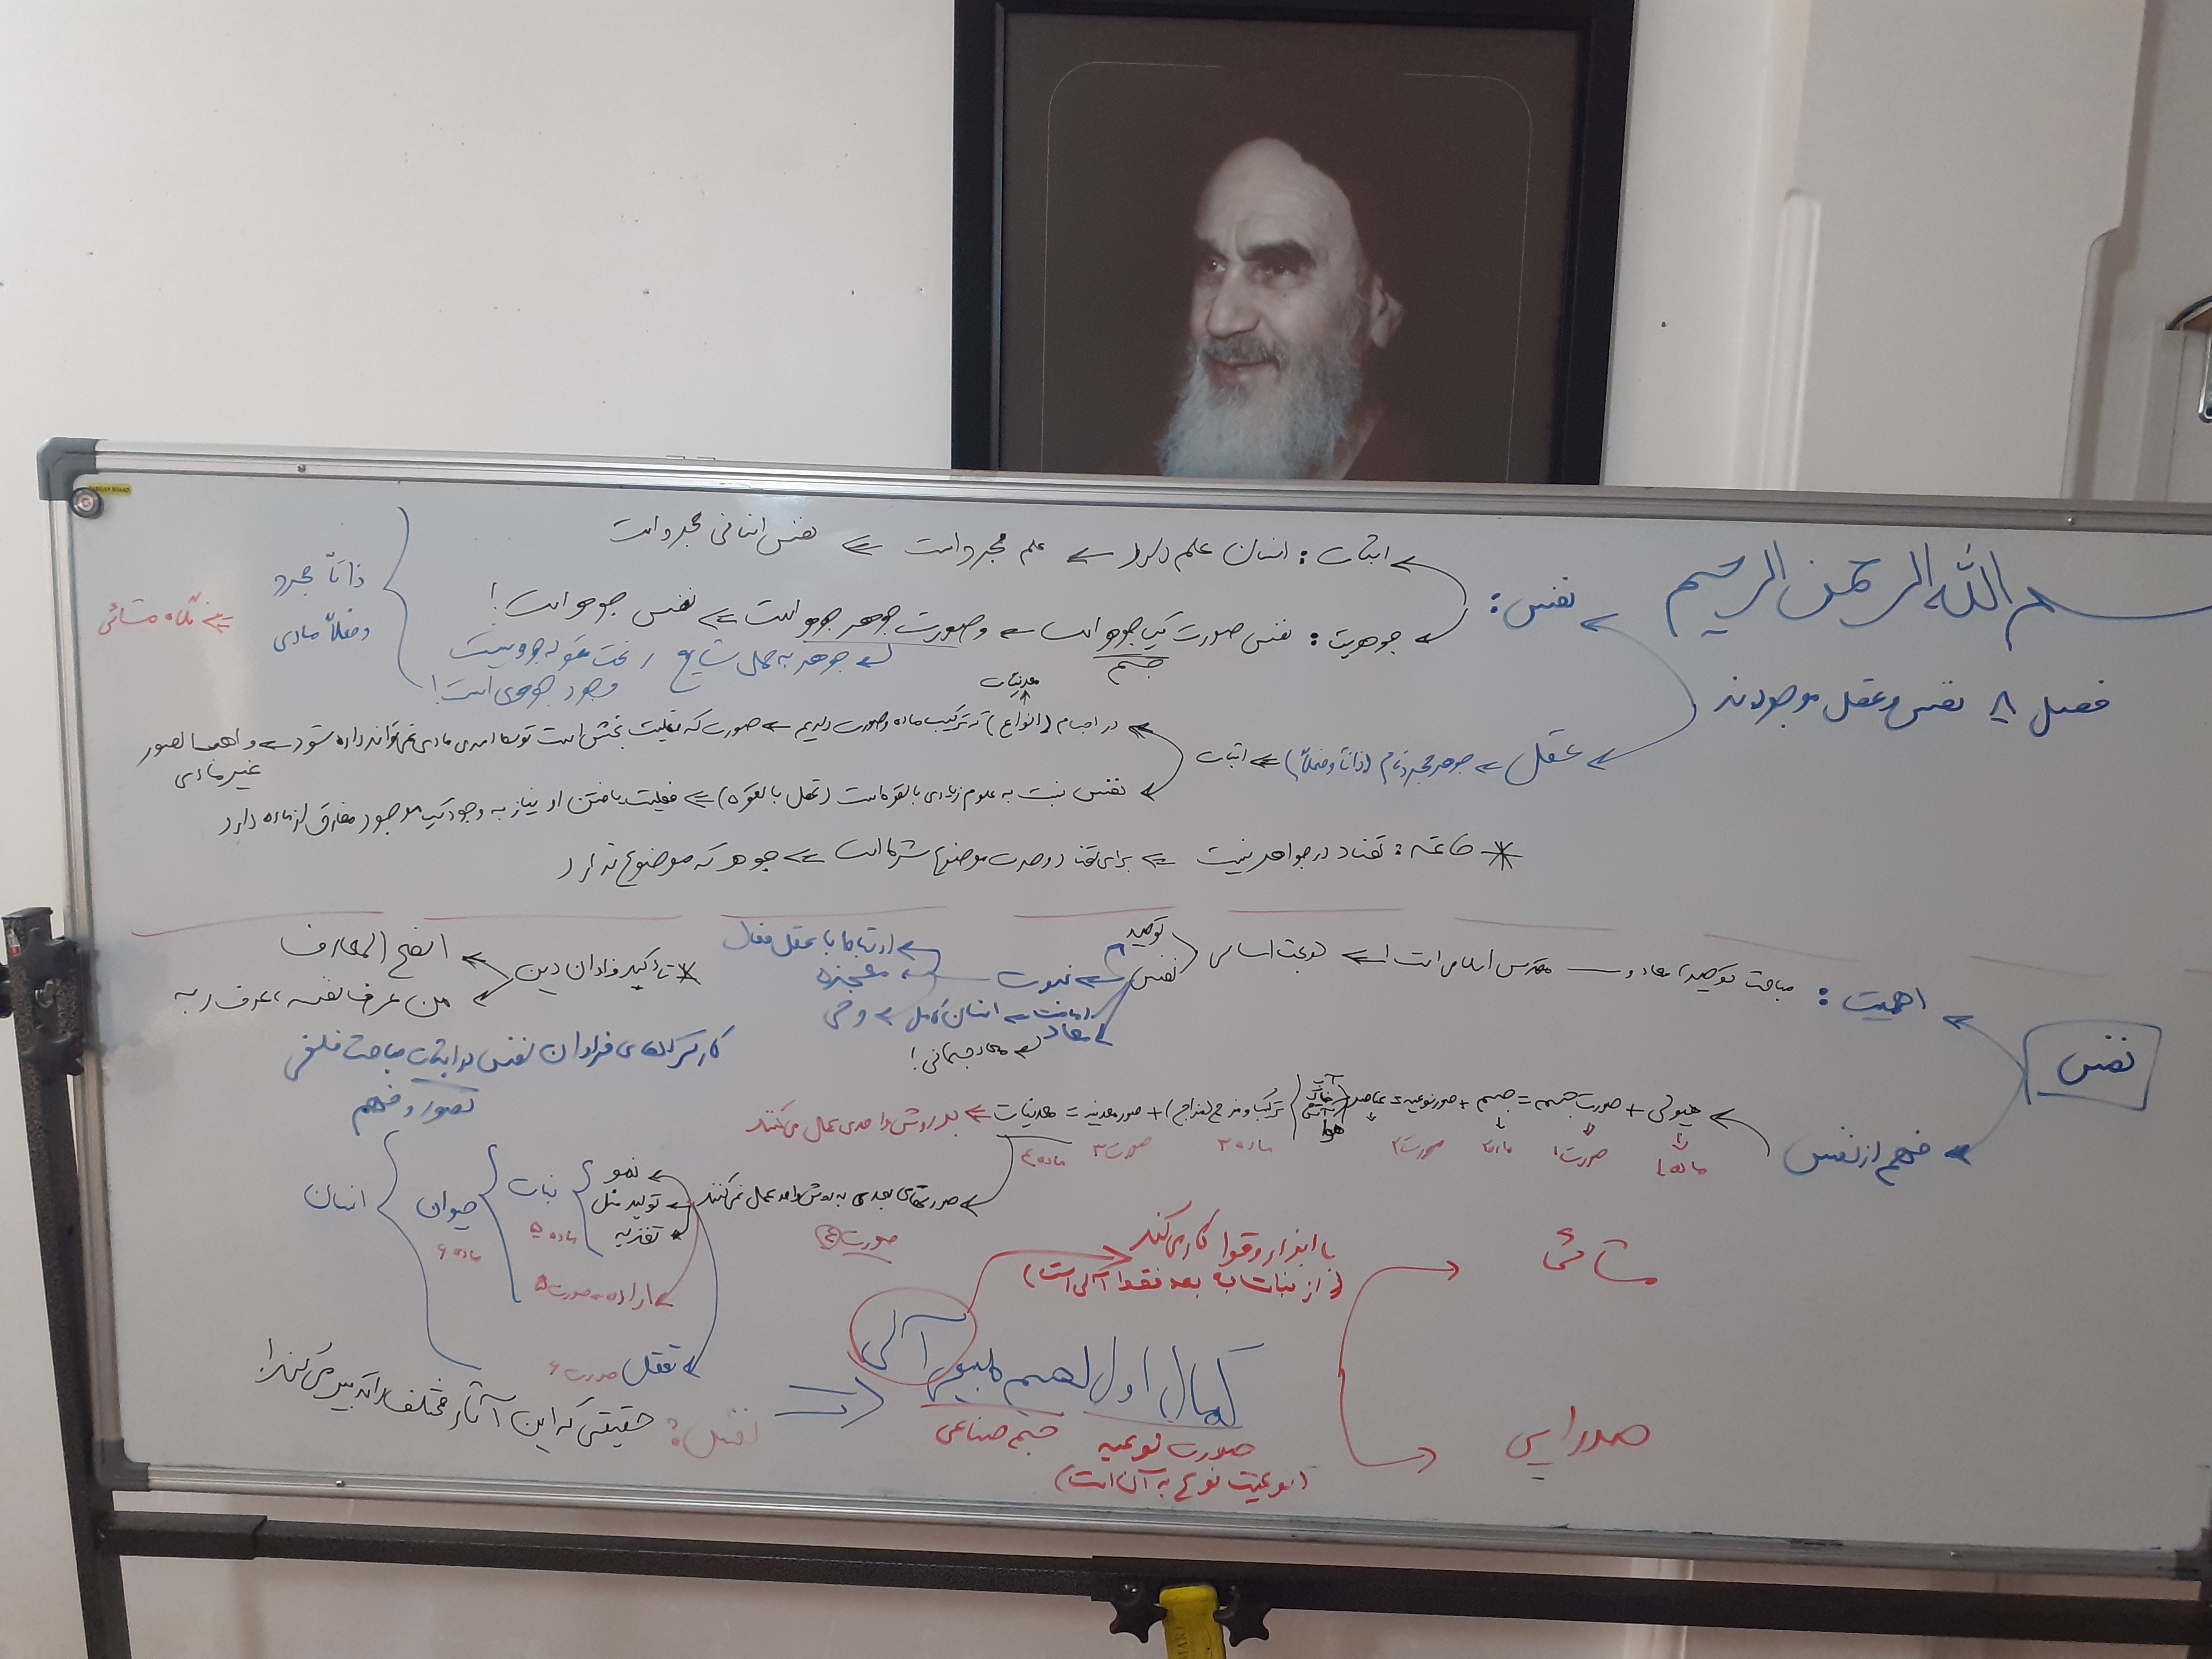 بسم الله الرحمن الرحیم
فصل ۸ نفس و عقل موجودند
نفس:
اثبات: انسان علم دارد ← علم مجرد است ⇐ نفس انسانی مجرد است
جوهریت: نفس صورت یک جوهر است ← و صورت جوهر جوهر است ⇐ نفس جوهر است!
جسم
جوهر به حمل شایع / تحت مقوله جوهر نیست
وجود جوهری است!
ذاتاً مجرد
و فعلاً مادی
⇐ نگاه مشائی
عقل ← جوهر مجرد تام (ذاتاً و فعلاً) ⇐ اثبات
معدنیات
در اجسام (انواع) که ترکیب ماده و صورت داریم ← صورت که فعلیت بخش است توسط امری مادی نمی‌تواند داده شود ← واهب الصور
غیر مادی
نفس نسبت به علوم زیادی بالقوه است (عقل بالقوه) ⇐ فعلیت یافتن او نیاز به وجود یک موجود مفارق از ماده دارد
* خاتمه: تضاد در جواهر نیست ⇐ برای تضاد وحدت موضوع شرط است ⇐ جوهر که موضوع ندارد
نفس
اهمیت:
مباحث توحید، معاد و ... مقدس اسلامی است ⇐ دو بحث اساسی
توحید
نفس ⇐ نبوت
ارتباط با عقل فعال
معجزه
امامت ← انسان کامل ← وحی
معاد
معاد جسمانی!
* تأکید فراوان دین
انفع المعارف
من عرف نفسه، عرف ربه
کارکردهای فراوان نفس در اثبات مباحث فلسفی
تصور و فهم
فهم از نفس
هیولی + صورت جسمیه = جسم + صور نوعیه = عناصر
آب
خاک
آتش
هوا
ترکیب و مزج (مزاج) + صور معدنیه = معدنیات ⇐ به روش واحدی عمل می‌کنند
ماده ۱ صورت ۱ ماده ۲ صورت ۲ ماده ۳ صورت ۳ ماده ۴
صورتهای بعدی به روش واحد عمل نمی‌کنند
صورت ۴
نمو
تولید مثل
تغذیه
نبات
ماده ۵
حیوان
ماده ۶
انسان
اراده ← صورت ۵
تعقل صورت ۶
مشائی
صدرایی
با ابزار و قوا کار می‌کند
(از نبات به بعد فقط آلی است)
کمال اول لجسم طبیعی آلی
جسم صناعی
صورت نوعیه
(نوعیت نوع به آن است)
نفس: حقیقتی که این آثار مختلف را تدبیر می‌کند!